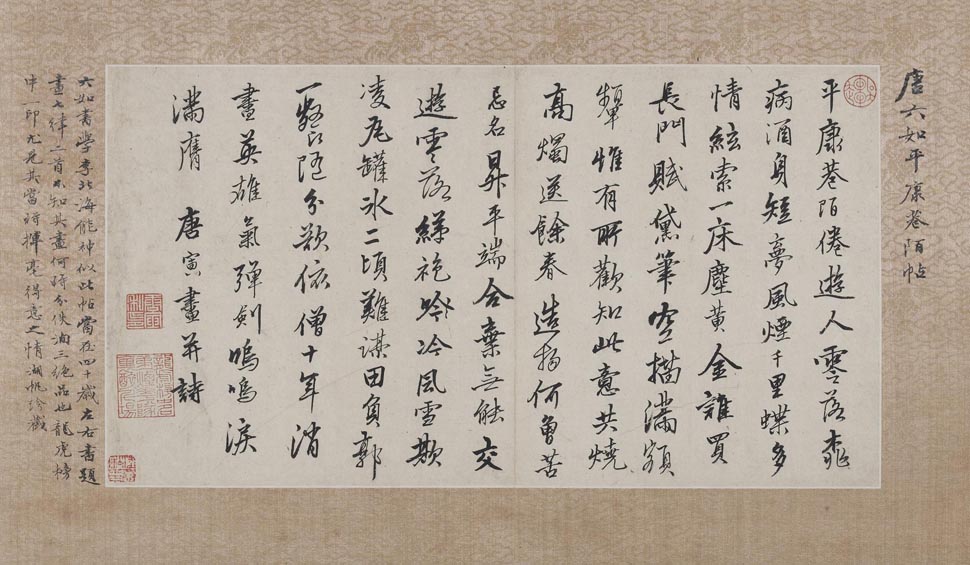 唐六如平康巷陌帖
平康巷陌倦遊人零落桃
病酒身短夢風煙千里蝶多
情絃索一床塵黃金誰買
長門賦黛筆空描滿額
顰惟有所歡知此意共燒
高燭送餘春造物何曾苦
忌名昇平端合棄無能交
遊零落綈袍吟冷風雪欺
凌瓦罐冰二頃難謀田負郭
一餐隨分欲依僧十年消
盡英雄氣彈劍嗚嗚淚
滿膺 唐寅畫并詩
六如書學李北海能神似此帖當在四十歲左右書題
畫七律二首不知其畫何時分佚洵三絕品也龍虎榜
中一印尤見其當時揮毫得意之情湖帆